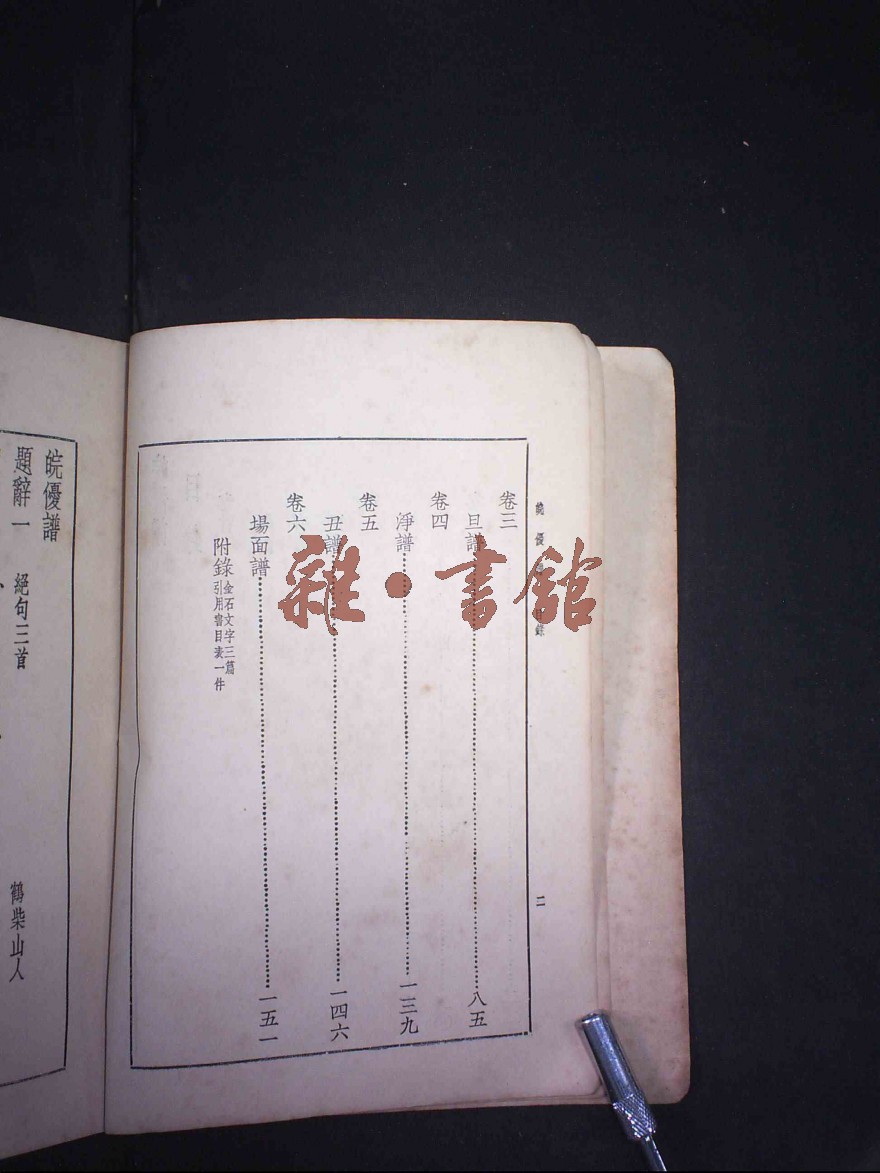 皖優譜 目錄
二
卷三
旦譜⋯⋯⋯⋯八五
卷四
淨譜⋯⋯⋯⋯一三九
卷五
丑譜⋯⋯⋯⋯一四六
卷六
場面譜⋯⋯⋯⋯一五一
附錄 金石文字三篇
引用書目表一件
皖優譜
題辭一 絕句三首
鶴柴山人
雜·書館